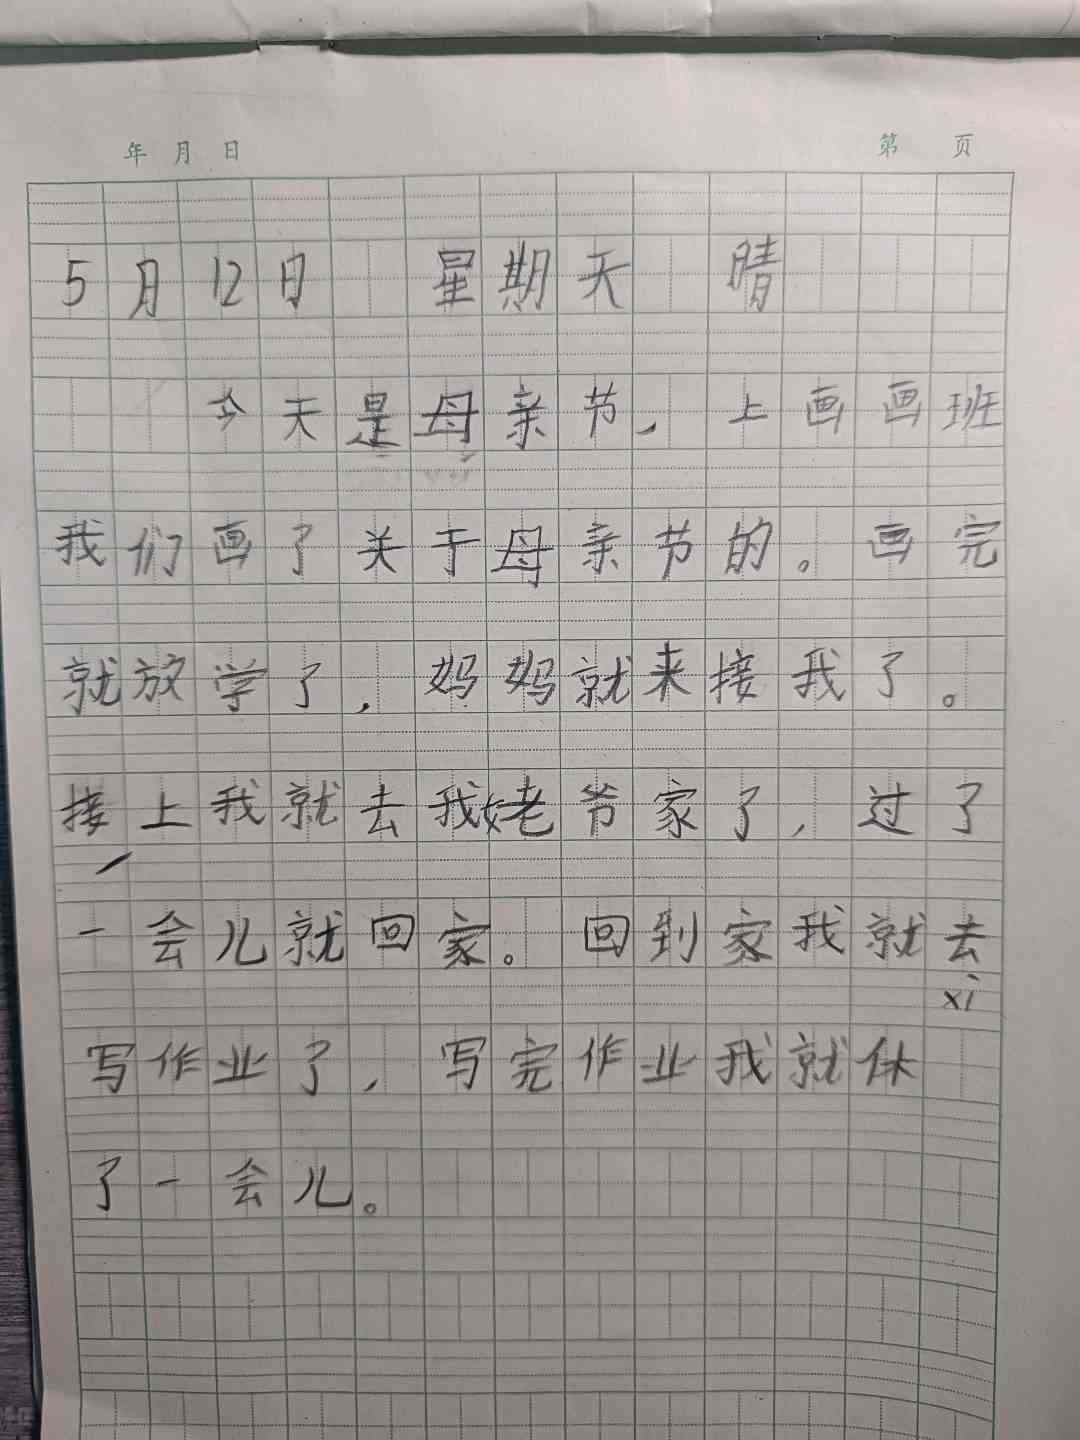 年 月 日 第 页
5月12日 星期天 晴
今天是母亲节，上画画班
我们画了关于母亲节的。画完
就放学了，妈妈就来接我了。
接上我就去我姥爷家了，过了
一会儿就回家。回到家我就去
xi
写作业了，写完作业我就休
了一会儿。